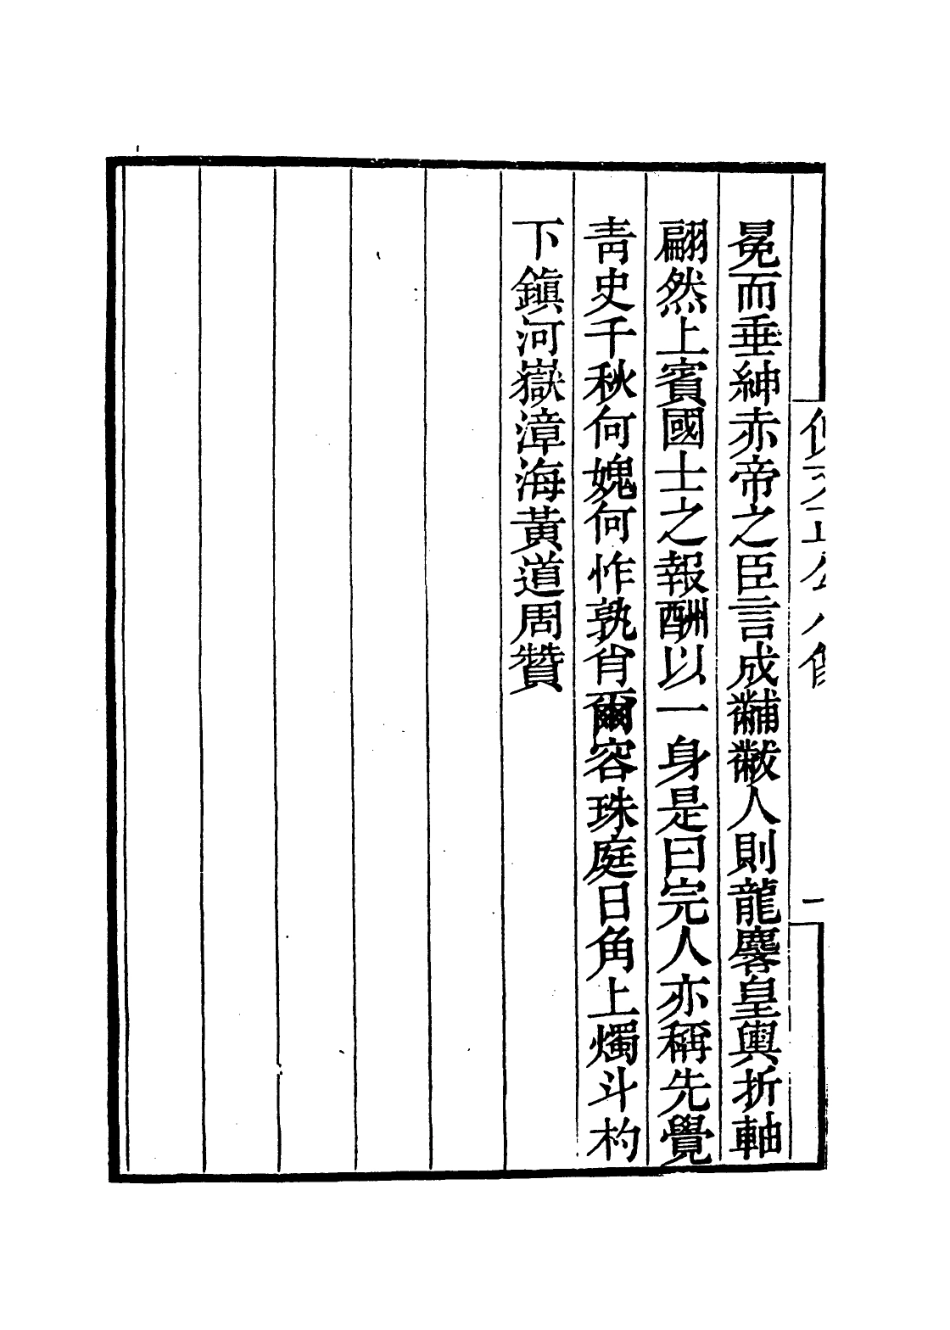 冕而垂紳赤帝之臣言成黼黻人則龍麐皇輿折軸
翩然上賓國士之報酬以一身是曰完人亦稱先覺
靑史千秋何媿何怍孰肖爾容珠庭日角上燭斗杓
下鎭河嶽漳海黃道周贊
二